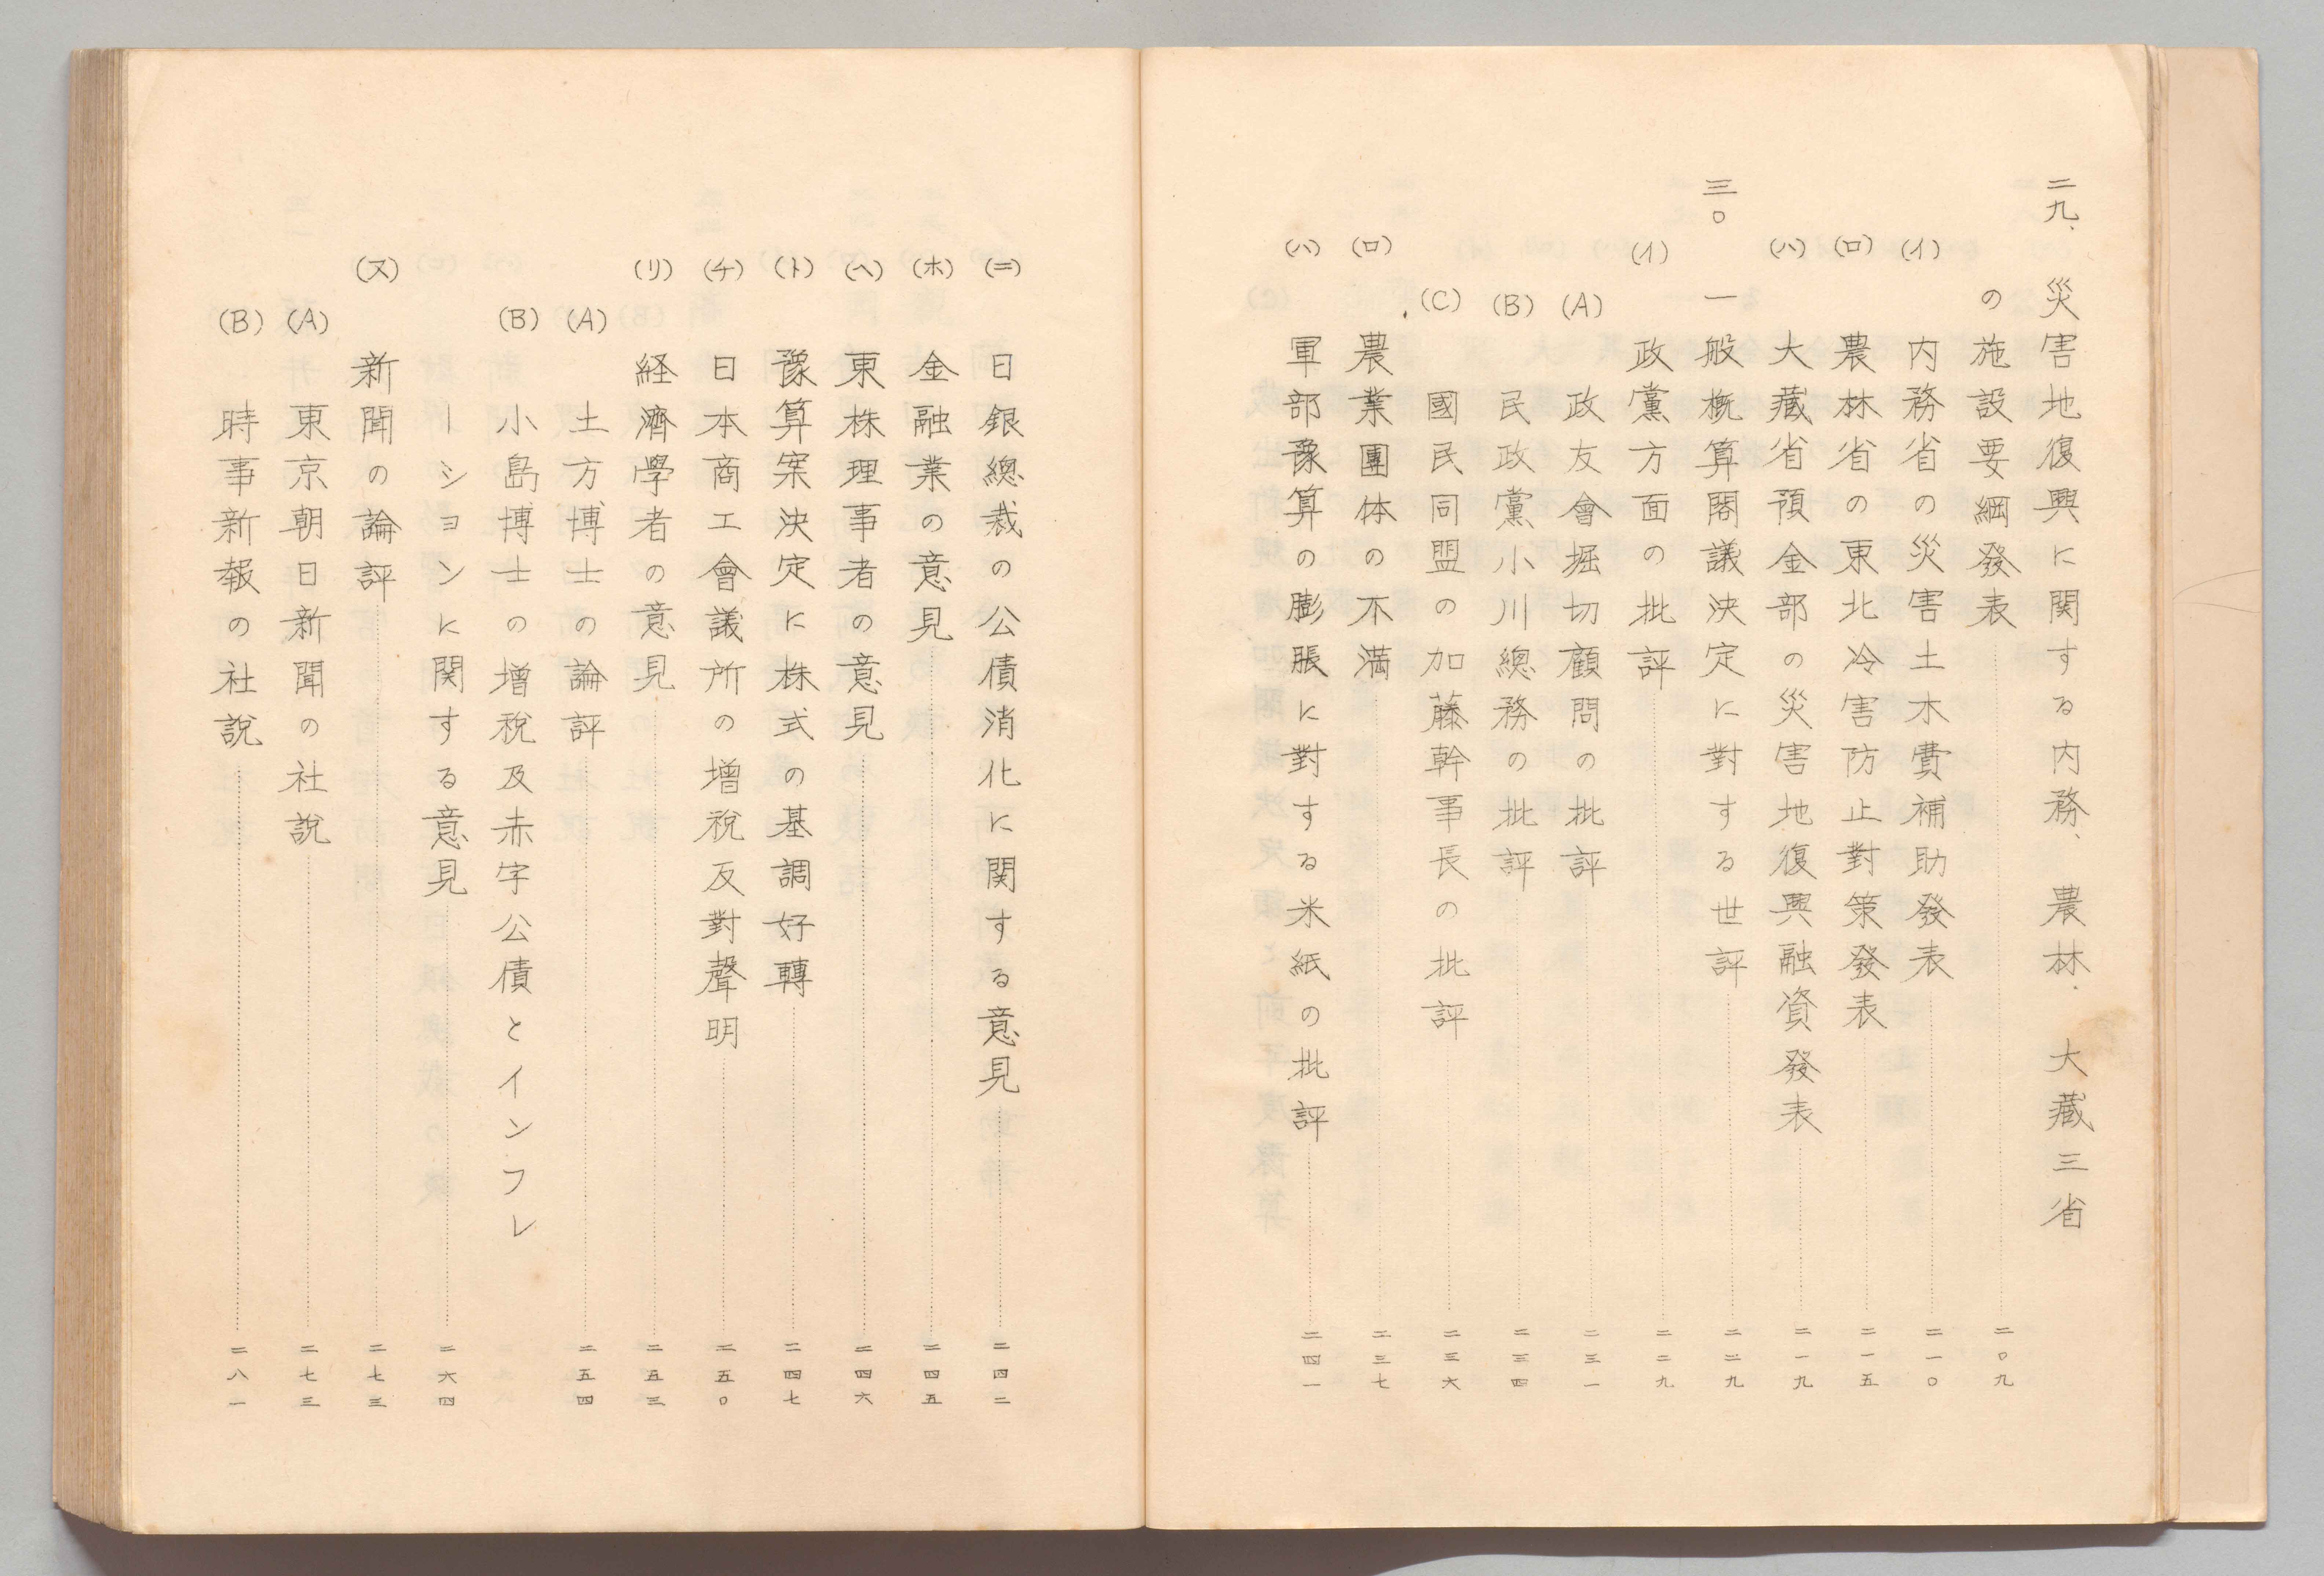 二九、災害地復興に関する内務、農林、大藏三省
の施設要綱發表 二〇九
(イ) 内務省の災害土木費補助發表 二一〇
(ロ) 農林省の東北冷害防止對策發表 二一五
(ハ) 大藏省預金部の災害地復興融資發表 二一九
三〇 一般概算閣議決定に對する世評 二二九
(イ) 政黨方面の批評 二二九
(A) 政友會堀切顧問の批評 二三一
(B) 民政黨小川總務の批評 二三四
(C) 國民同盟の加藤幹事長の批評 二三六
(ロ) 農業團体の不滿 二三七
(ハ) 軍部豫算の膨脹に對する米紙の批評 二四一
(ニ) 日銀總裁の公債消化に関する意見 二四二
(ホ) 金融業の意見 二四五
(ヘ) 東株理事者の意見 二四六
(ト) 豫算案決定に株式の基調好轉 二四七
(チ) 日本商工會議所の增稅反對聲明 二五〇
(リ) 経濟學者の意見 二五三
(A) 土方博士の論評 二五四
(B) 小島博士の增稅及赤字公債とインフレ
ーションに関する意見 二六四
(ヌ) 新聞の論評 二七三
(A) 東京朝日新聞の社說 二七三
(B) 時事新報の社說 二八一